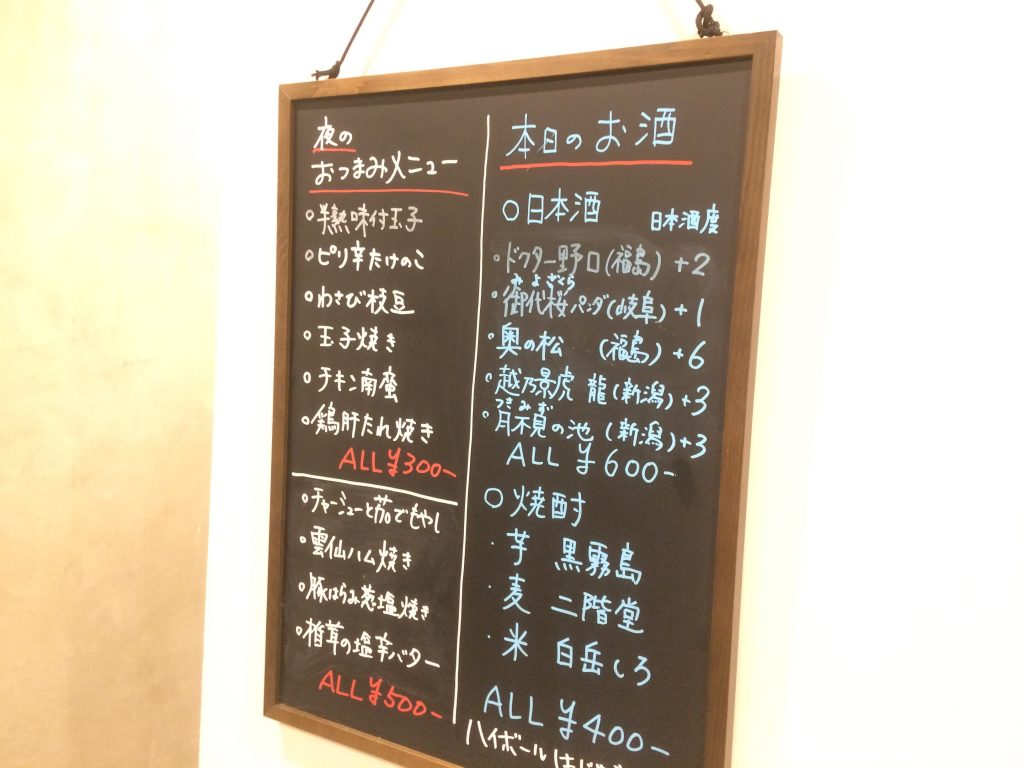 夜の
おつまみメニュー
○半熟味付玉子
○ピリ辛たけのこ
○わさび枝豆
○玉子焼き
○チキン南蛮
○鶏肝たれ焼き
ALL ¥300-
○チャーシューと茹でもやし
○雲仙ハム焼き
○豚はらみ葱塩焼き
○椎茸の塩辛バター
ALL ¥500-
本日のお酒
○日本酒 日本酒度
・ドクター野口(福島) +2
みよざくら
・御代桜パンダ(岐阜) +1
・奥の松 (福島) +6
・越乃景虎 龍(新潟) +3
つきみず
・月不見の池 (新潟) +3
ALL ¥600-
○焼酎
・芋 黒霧島
・麦 二階堂
・米 白岳しろ
ALL ¥400-
ハイボールはじ